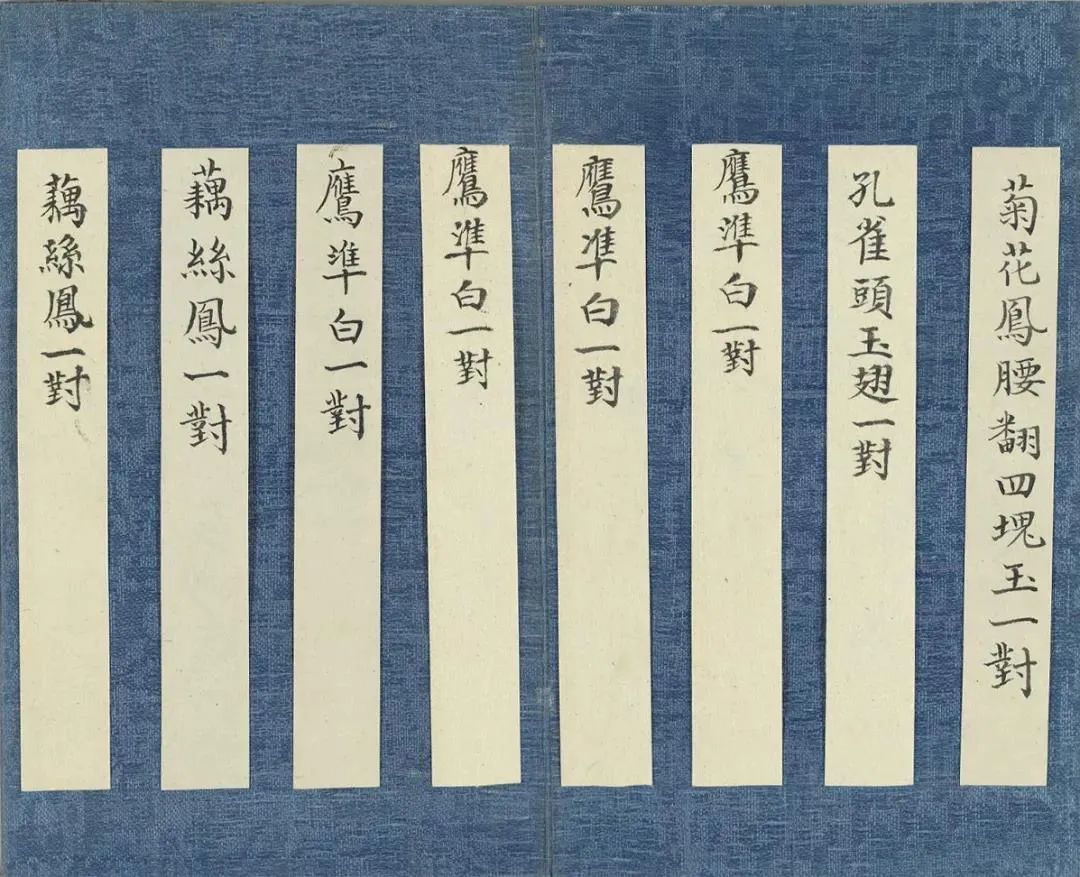 菊花鳳腰翻四塊玉一對
孔雀頭玉翅一對
鷹準白一對
鷹准白一對
鷹準白一對
鷹準白一對
藕絲鳳一對
藕絲鳳一對